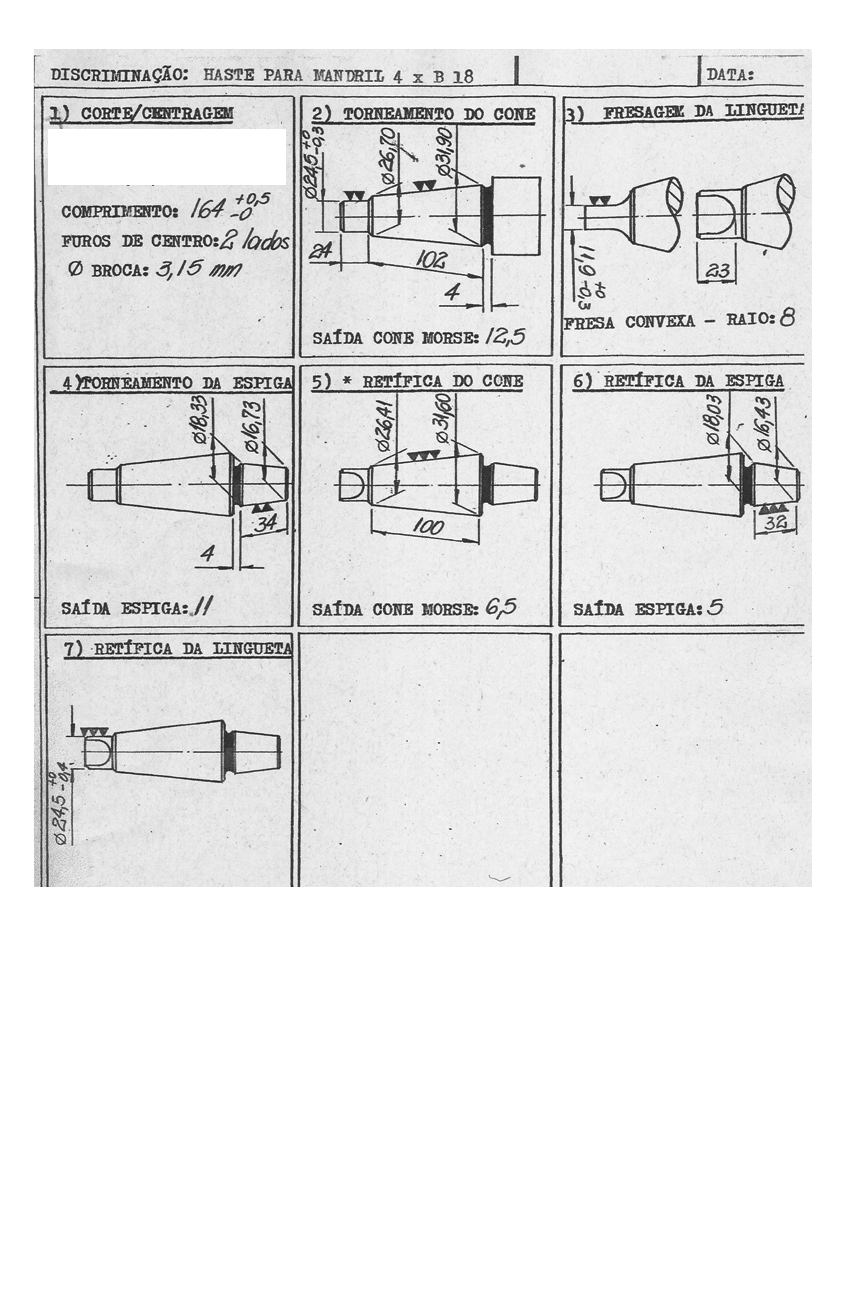 DISCRIMINAÇÃO: HASTE PARA MANDRIL 4 x B 18
DATA:
1) CORTE/CENTRAGEM
COMPRIMENTO: 164 +0,5 -0
FUROS DE CENTRO: 2 lados
Ø BROCA: 3,15 mm
2) TORNEAMENTO DO CONE
Ø24,5 +0 -0,3
Ø26,70
Ø31,90
24
102
4
SAÍDA CONE MORSE: 12,5
3) FRESAGEM DA LINGUETA
11,9 +0 -0,3
23
FRESA CONVEXA - RAIO: 8
4) TORNEAMENTO DA ESPIGA
Ø18,33
Ø16,73
34
4
SAÍDA ESPIGA: 11
5) * RETÍFICA DO CONE
Ø26,41
Ø31,60
100
SAÍDA CONE MORSE: 6,5
6) RETÍFICA DA ESPIGA
Ø18,03
Ø16,43
32
SAÍDA ESPIGA: 5
7) RETÍFICA DA LINGUETA
Ø24,5 +0 -0,4